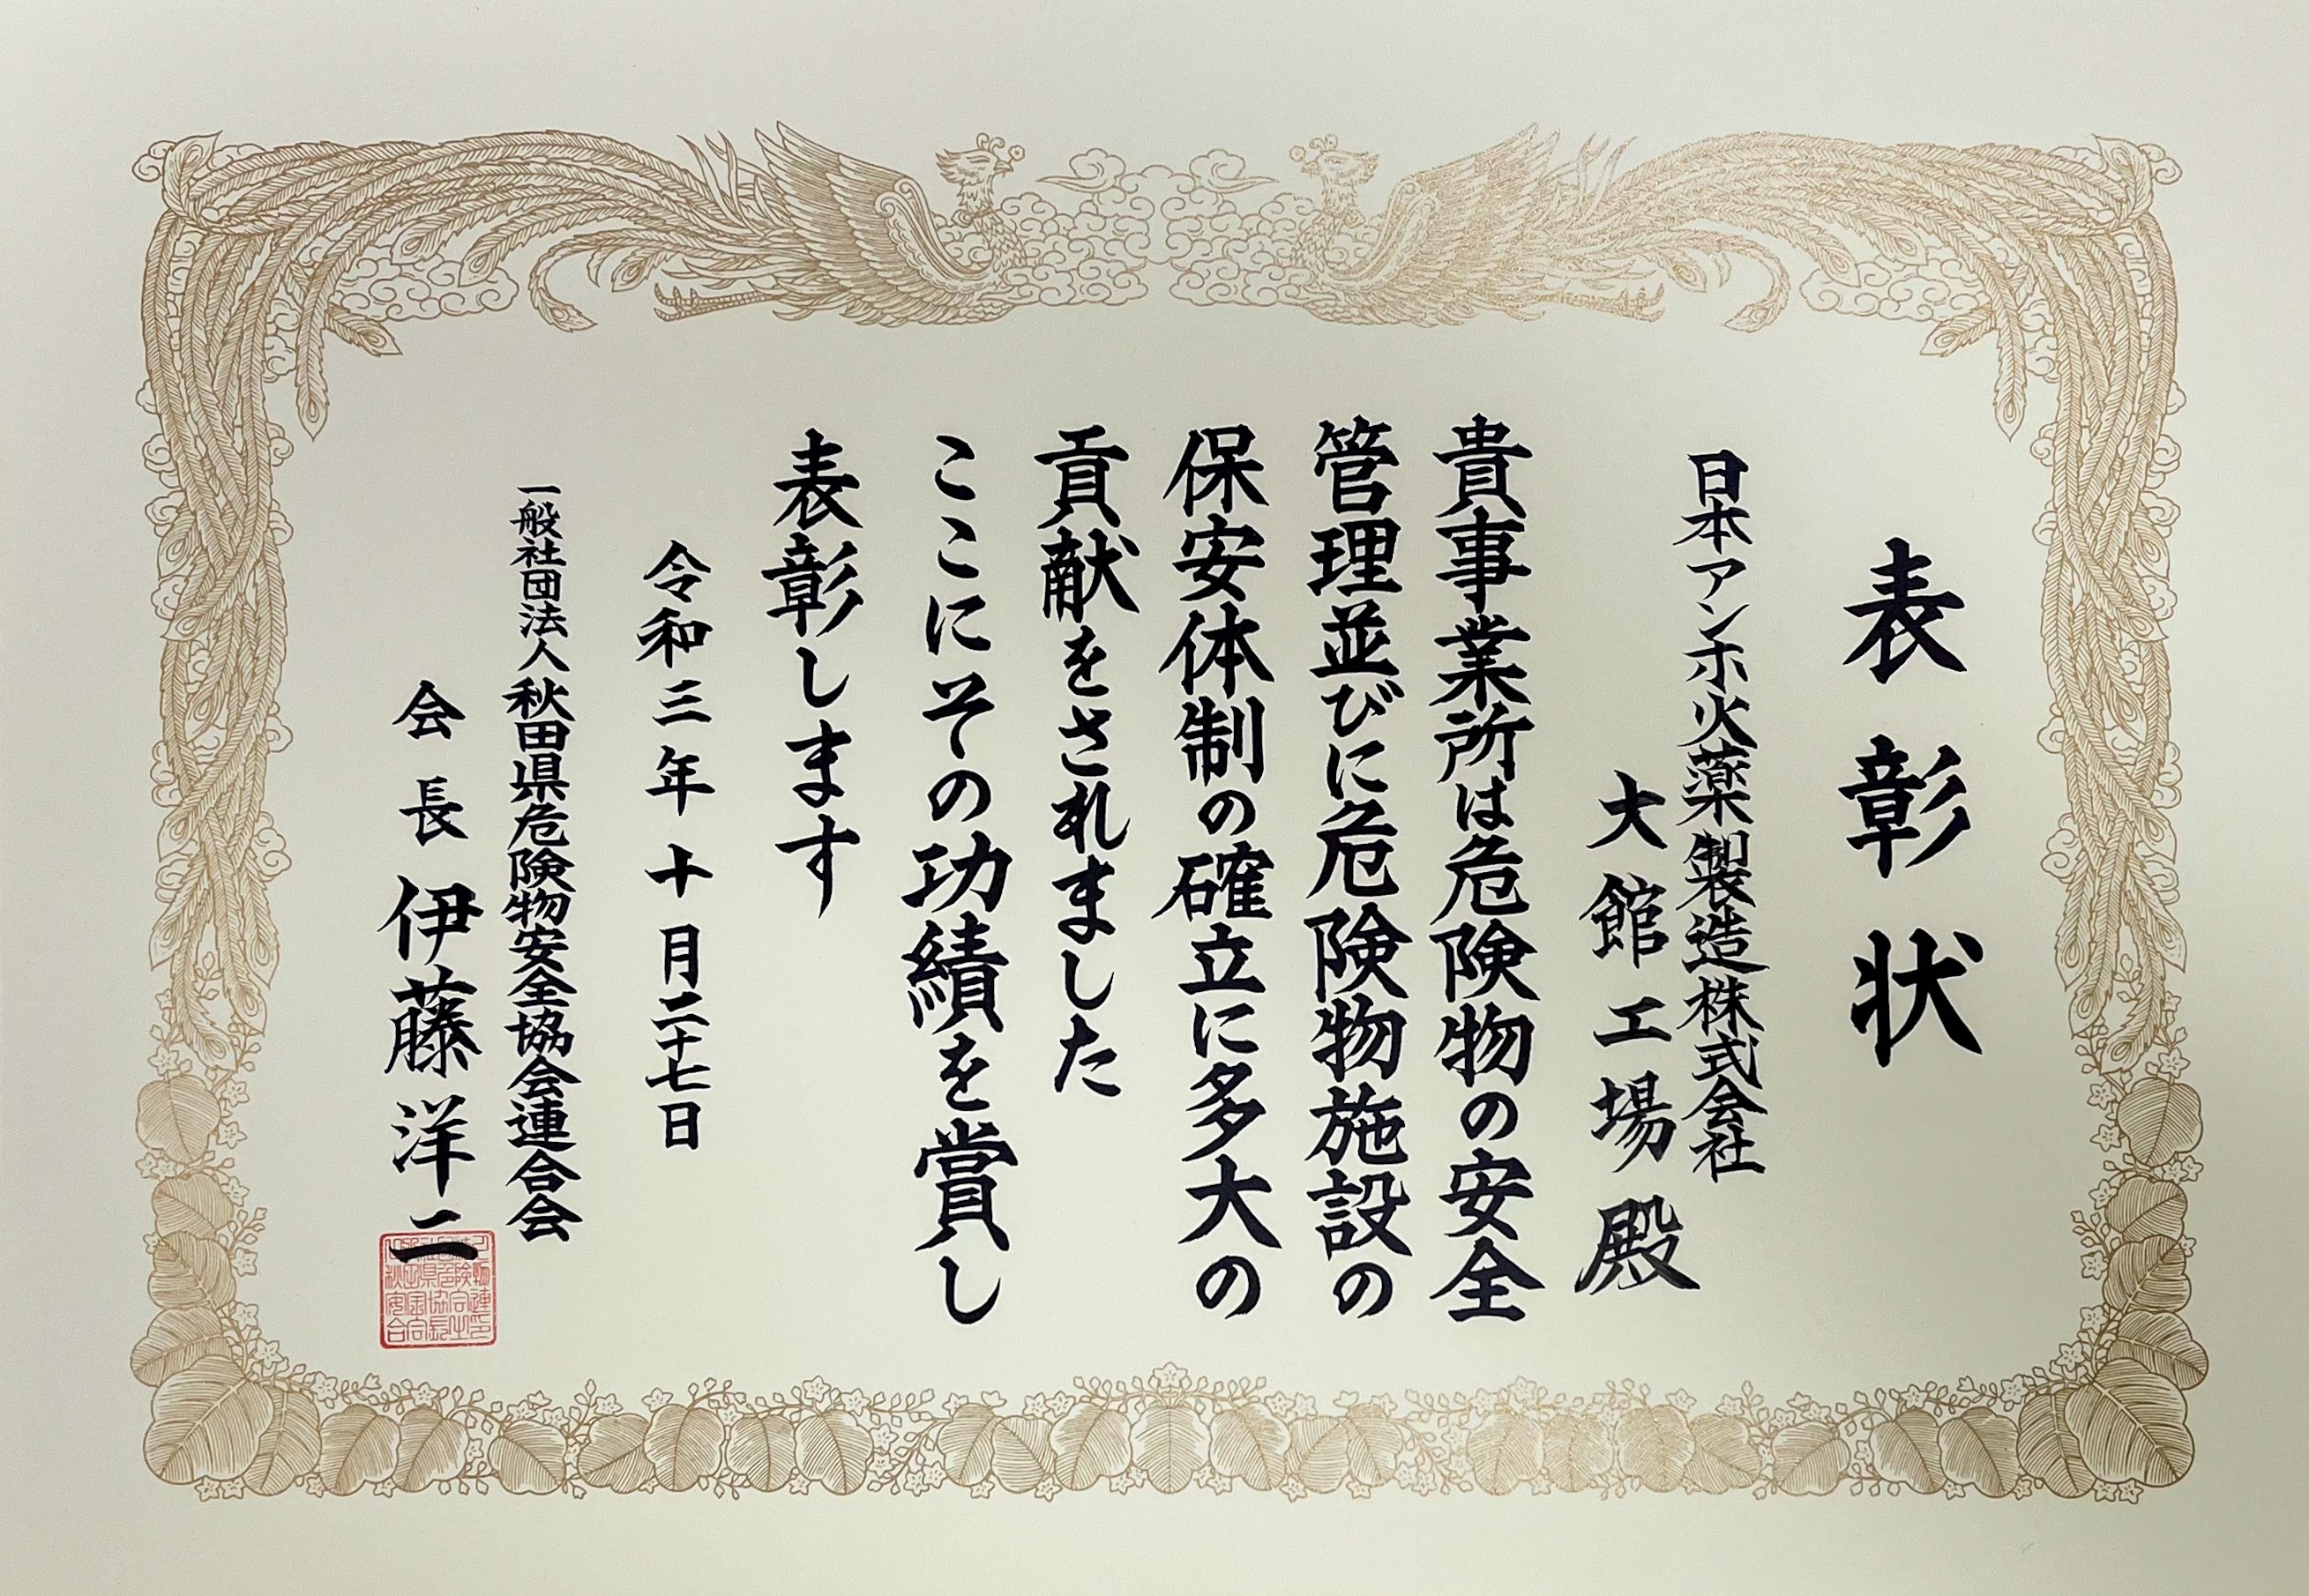 表彰状
日本アンホ火薬製造株式会社
大館工場殿
貴事業所は危険物の安全
管理並びに危険物施設の
保安体制の確立に多大の
貢献をされました
ここにその功績を賞し
表彰します
令和三年十月二十七日
一般社団法人秋田県危険物安全協会連合会
会長伊藤洋二